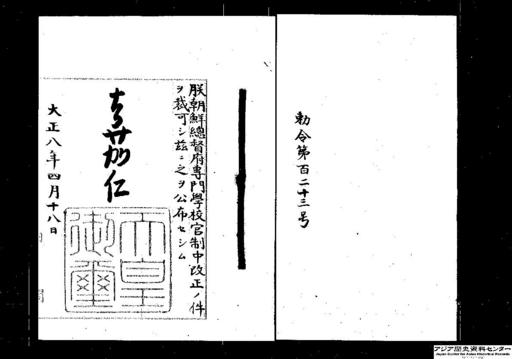 勅令第百二十三号
朕朝鮮總督府專門學校官制中改正ノ件
ヲ裁可シ茲ニ之ヲ公布セシム
嘉仁
天皇御璽
大正八年四月十八日
アジア歴史資料センター
Japan Center for Asian Historical Records